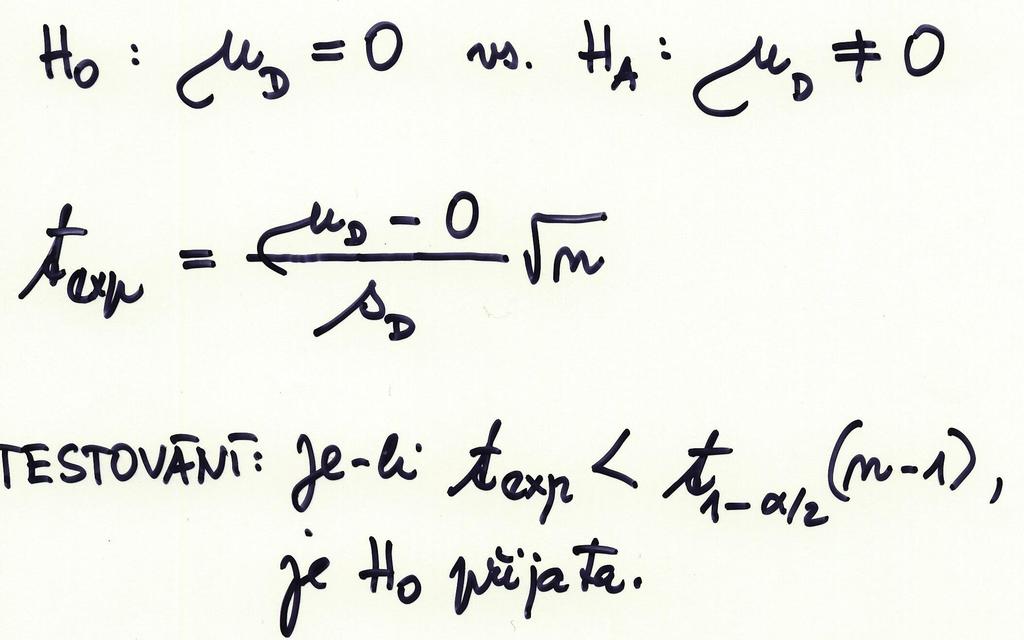 H₀ : μ_D = 0 vs. H_A : μ_D ≠ 0
t_exp = (μ_D - 0) / s_D √n
TESTOVÁNÍ: je-li t_exp < t_1-α/2 (n-1),
je H₀ přijata.